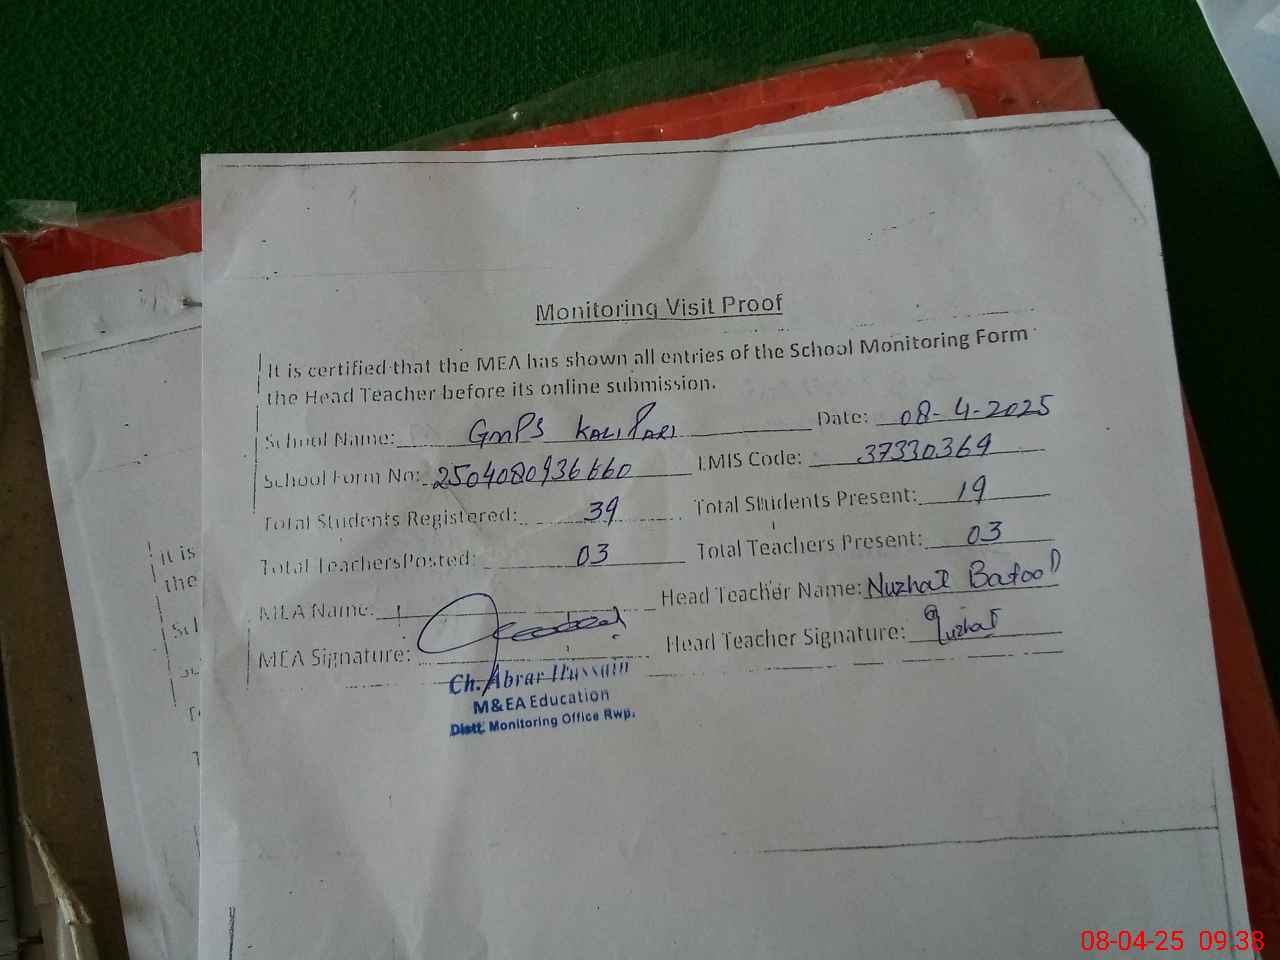 Monitoring Visit Proof
It is certified that the MEA has shown all entries of the School Monitoring Form
the Head Teacher before its online submission.
School Name: GMPS KALI PARI Date: 08-4-2025
School Form No: 2504080936660 EMIS Code: 37330369
Total Students Registered: 39 Total Students Present: 19
Total Teachers Posted: 03 Total Teachers Present: 03
MEA Name: Head Teacher Name: Nuzhat Batool
MEA Signature: Head Teacher Signature: Nuzhat
Ch. Abrar Hussain
M&EA Education
Distt. Monitoring Office Rwp.
It is
the
08-04-25 09:38